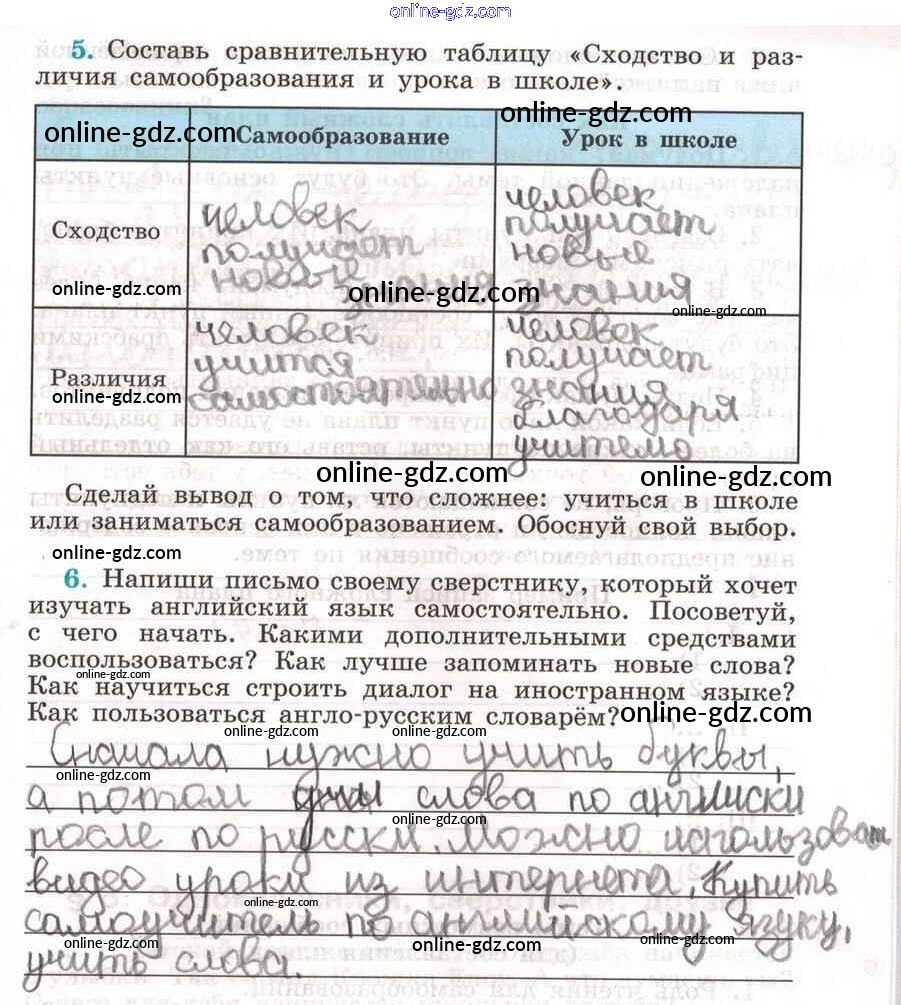 online-gdz.com
5. Составь сравнительную таблицу «Сходство и раз-
личия самообразования и урока в школе».
online-gdz.com
online-gdz.com
Самообразование
Урок в школе
Сходство
человек
получает
новые
знания
человек
получает
новые
знания
online-gdz.com
online-gdz.com
online-gdz.com
online-gdz.com
Различия
человек
учится
самостоятельно
человек
получает
знания
благодаря
учителю
online-gdz.com
online-gdz.com
online-gdz.com
online-gdz.com
Сделай вывод о том, что сложнее: учиться в школе
или заниматься самообразованием. Обоснуй свой выбор.
online-gdz.com
online-gdz.com
6. Напиши письмо своему сверстнику, который хочет
изучать английский язык самостоятельно. Посоветуй,
с чего начать. Какими дополнительными средствами
воспользоваться? Как лучше запоминать новые слова?
online-gdz.com
Как научиться строить диалог на иностранном языке?
Как пользоваться англо-русским словарём?
online-gdz.com
online-gdz.com
online-gdz.com
online-gdz.com
Сначала нужно учить буквы,
online-gdz.com
online-gdz.com
online-gdz.com
а потом слова по английски
online-gdz.com
online-gdz.com
после по русски. Можно использоват
видео уроки из интернета, Купить
online-gdz.com
online-gdz.com
самоучитель по английскому языку,
online-gdz.com
online-gdz.com
online-gdz.com
учить слова.